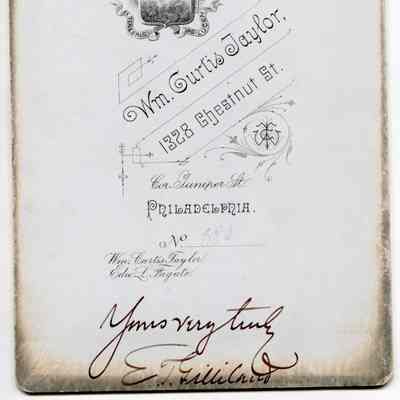 Wm. Curtis Taylor,
1328 Chestnut St.
Cor. Juniper St.
PHILADELPHIA.
No
Wm. Curtis Taylor
Yours very truly
E. T. Gilliland